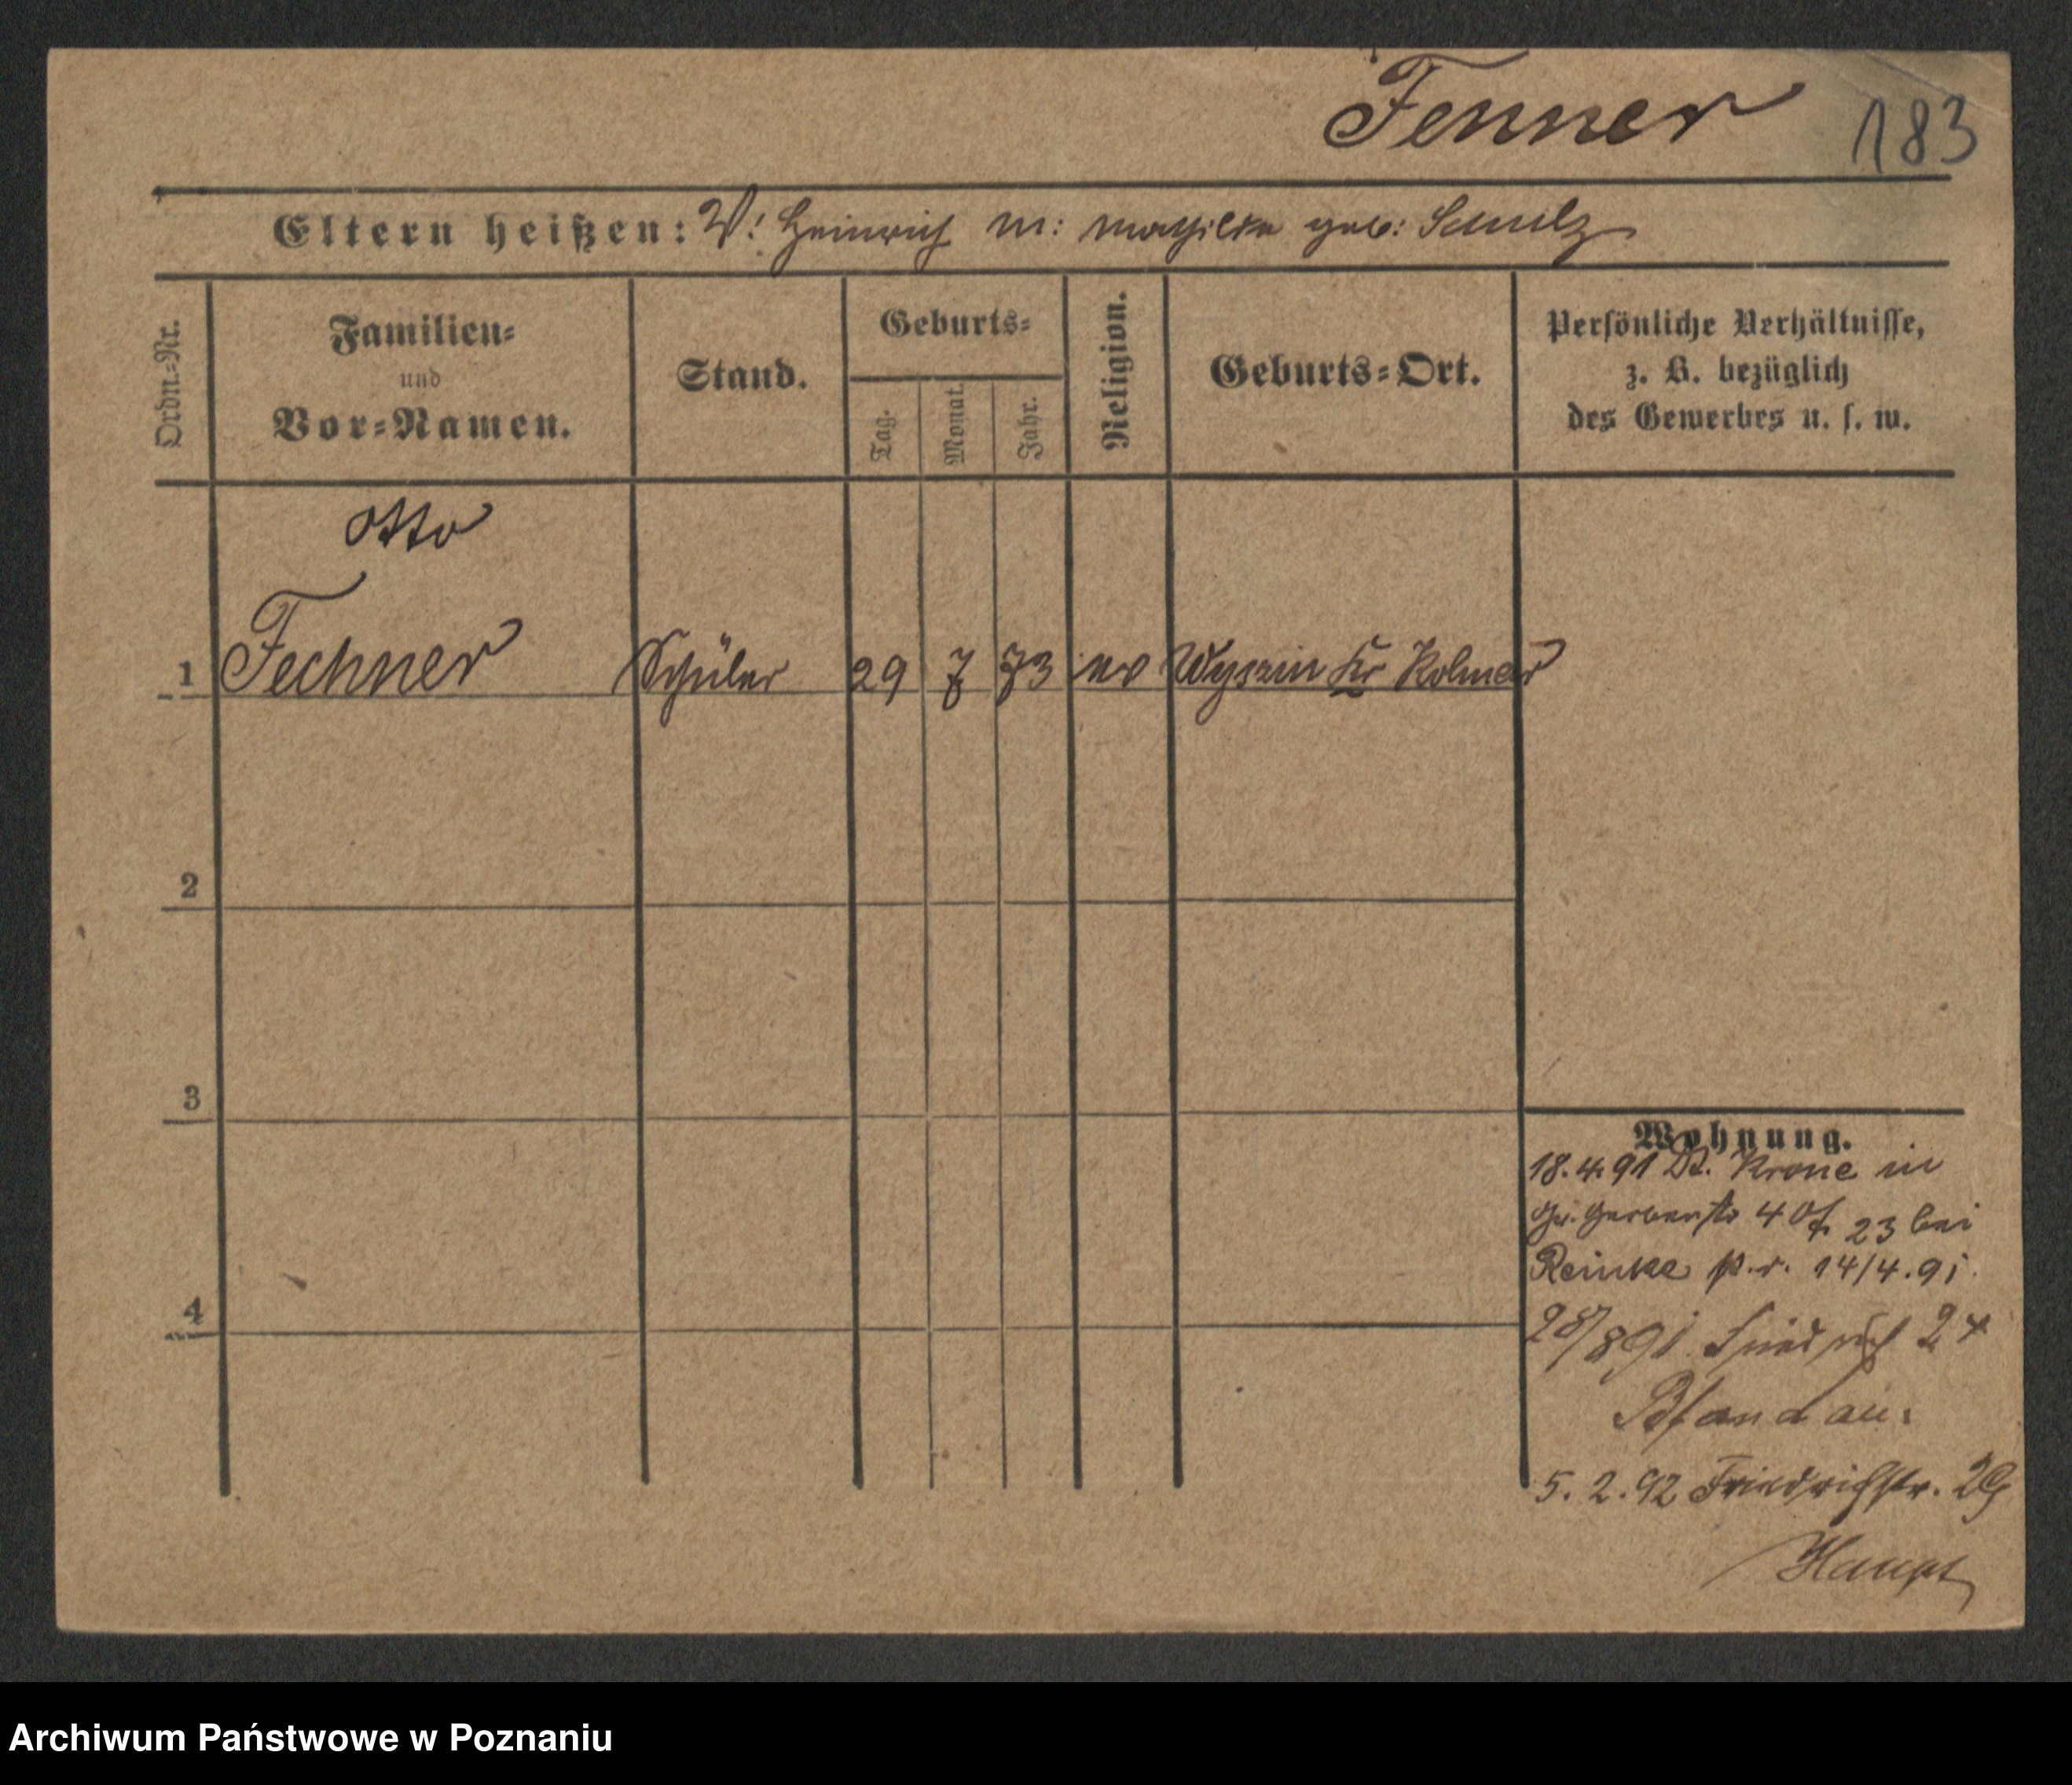 Fenner 183
Eltern heißen: V: Heinrich M: Mathilde geb: Schulz
Ordn.-Nr.
Familien-
und
Vor-Namen.
Stand.
Geburts-
Tag.
Monat.
Jahr.
Religion.
Geburts-Ort.
Persönliche Verhältnisse,
z. B. bezüglich
des Gewerbes u. s. w.
Otto
1 Fechner Schüler 29 7 73 ev Wyszin Kr Kolmar
2
3
4
Wohnung.
18.4.91 Dt. Krone in
Gr. Gerberstr 40 23 bei
Reinke p.r. 14/4.91.
28/8 91. Friedrich 24
5. 2. 92 Friedrichstr. 29
Haupt
Archiwum Państwowe w Poznaniu